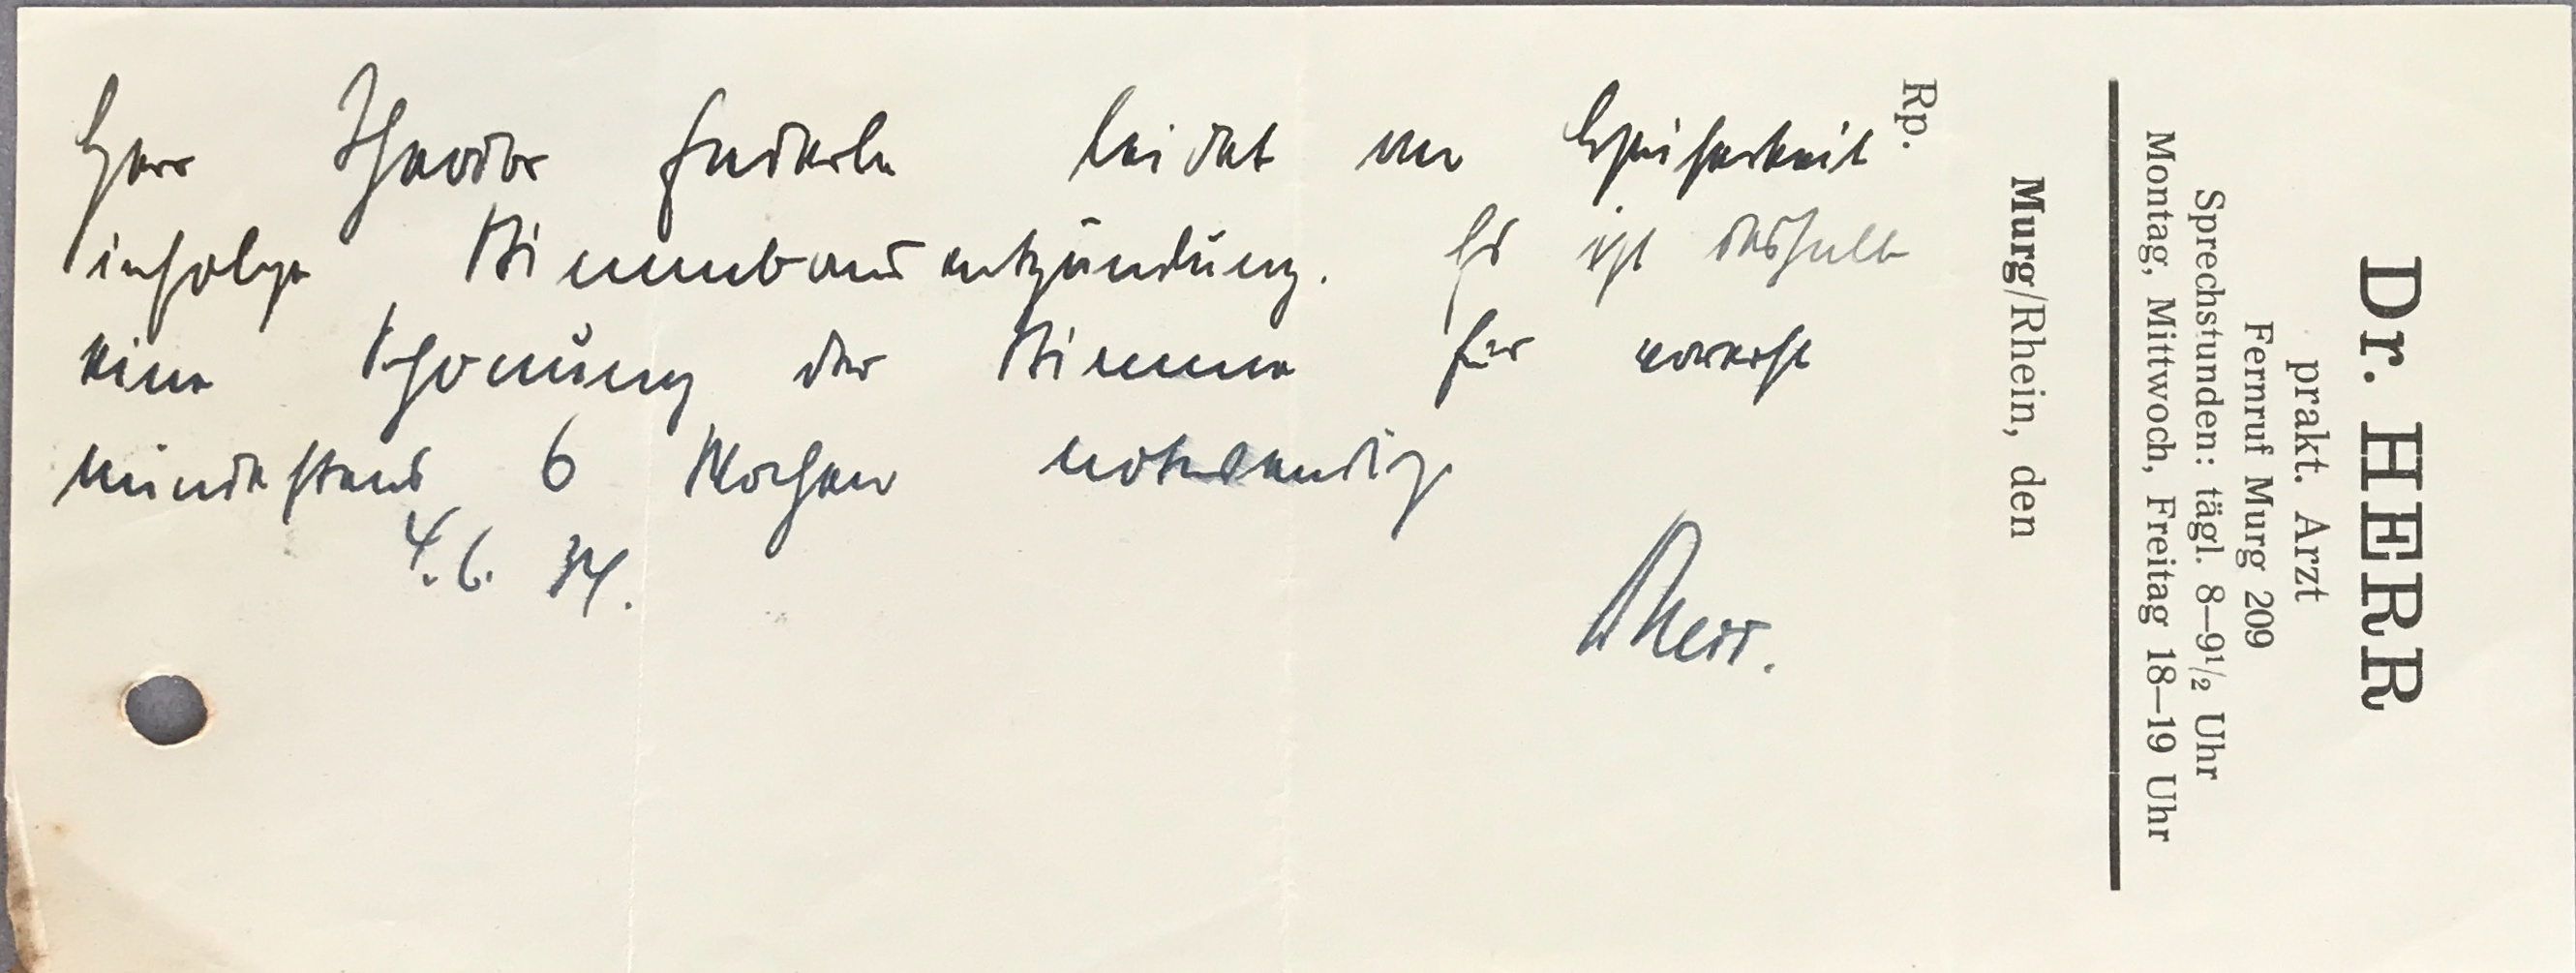 Dr. HERR
prakt. Arzt
Fernruf Murg 209
Sprechstunden: tägl. 8—9½ Uhr
Montag, Mittwoch, Freitag 18—19 Uhr
Murg/Rhein, den
Rp.
Herr Theodor leidet an Heiserkeit
infolge Stimmbandentzündung. Es ist deshalb
eine Schonung der Stimme für vorerst
mindestens 6 Wochen notwendig
4.6. 34.
Herr.